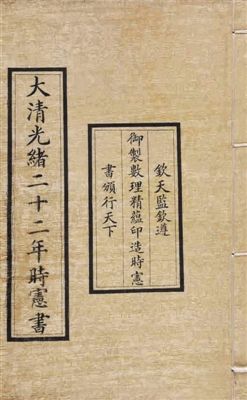 大清光緒二十二年時憲書
欽天監欽遵
御製數理精蘊印造時憲
書頒行天下